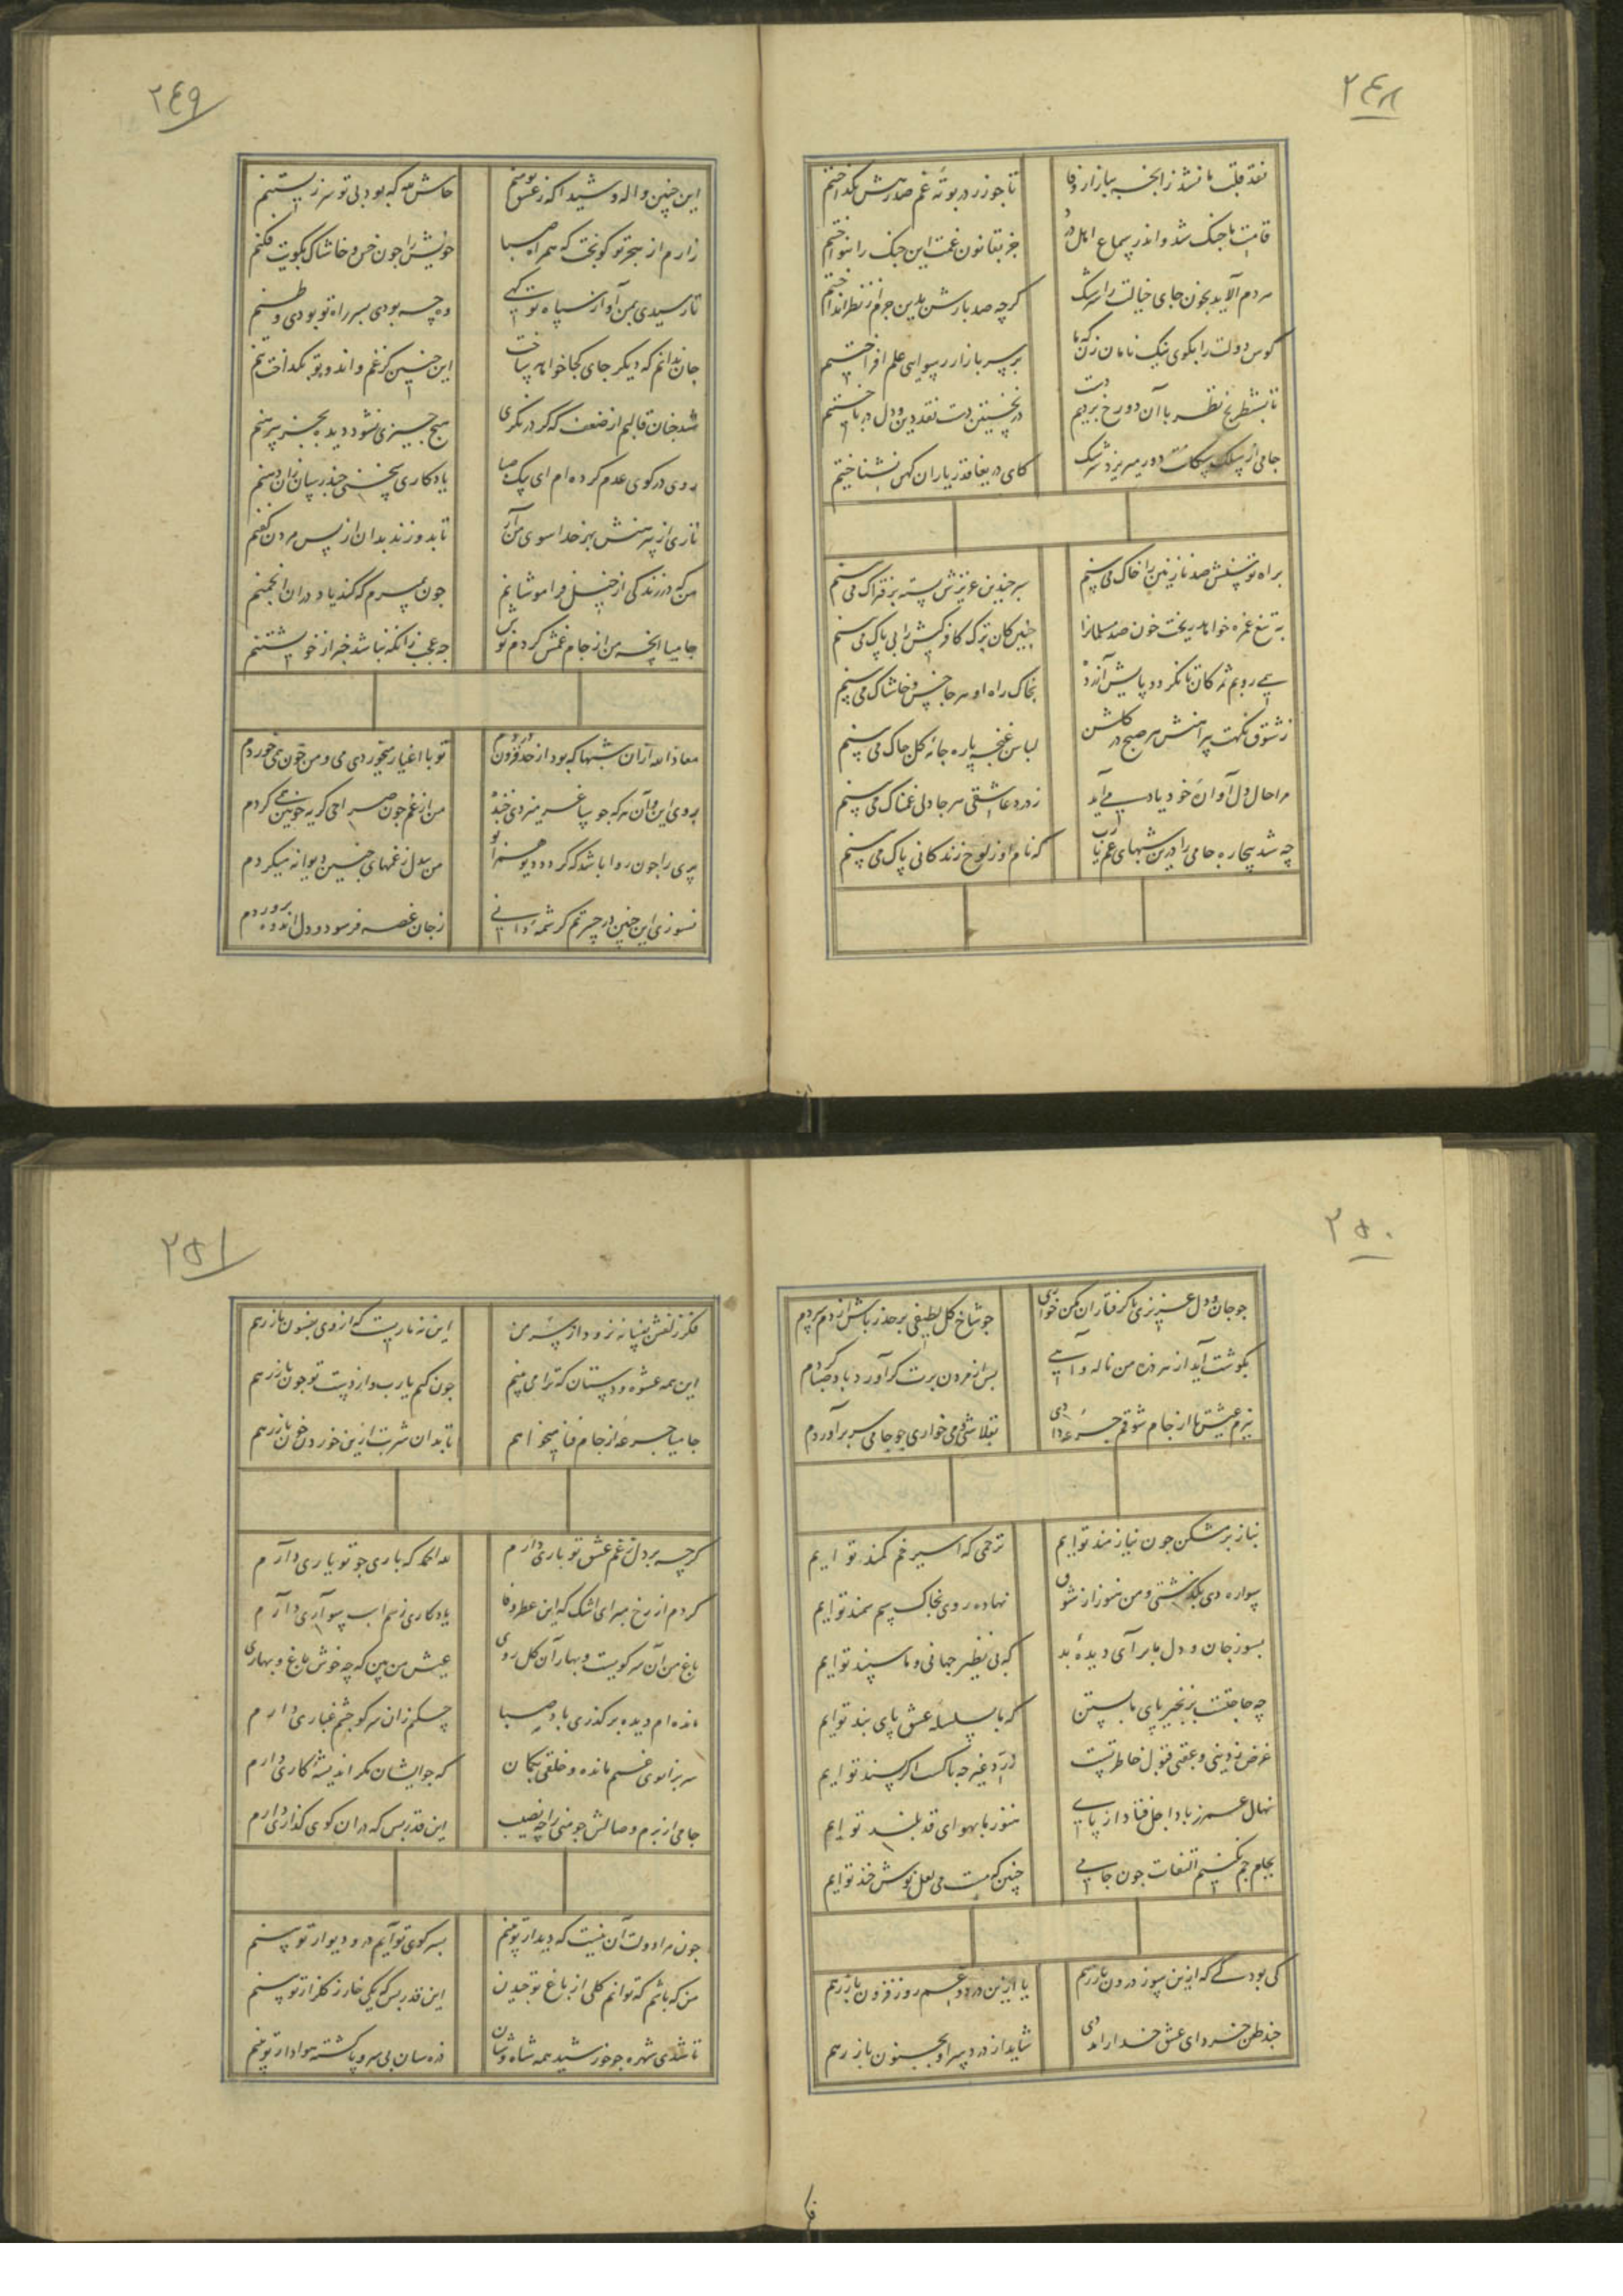 ۲۴۸
نقد قلب ما نشد زانجه ببازار وفا تا جو زر در بوتهٔ غم صد رهش نکداختیم
قامت ما جنک شد و اندر سماع اهل درد جز بقانون غمت این جنک را ننواختیم
مردم آلاید بخون جای خیالت را سرشک کرچه صد بارش بدین جرم از نظر انداختیم
کوس دولت را بکوی نیک نامان زن که ما بر سر بازار رسوایی علم افراختیم
تا بشطرنج نظر با آن دو رخ بردیم دست در نخستین دست نقد دین و دل در باختیم
جامی از سلک سکانت دور میریزد سرشک کای دریغا قدر یاران کهن نشناختیم
براه توسنش صد نازنین را خاک می بینم سر جندین عزیزش بسته بر فتراک می بینم
به تیغ غمزه خواهد ریخت خون صد مسلمانرا جنین کان ترک کافر کیش را بی باک می بینم
همی روبم بمژکان تا نکردد پایش آزرده بخاک راه او هر جا خس و خاشاک می بینم
ز شوق نکهت پیراهنش هر صبح در کلشن لباس غنجه پاره جامهٔ کل جاک می بینم
مرا حال دل آوارهٔ خود یاد می آید ز درد عاشقی هر جا دلی غمناک می بینم
چه شد بیچاره جامی را درین شبهای غم یارب که نام او ز لوح زندکانی پاک می بینم
۲۴۹
این جنین واله و شیدا که ز عشق تو منم حاش لله که بود بی تو سر زیستنم
زارم از هجر تو کو بخت که همراه صبا خویش را جون خس و خاشاک بکویت فکنم
تا رسیدی بمن آواز سپاه تو کهی وه چه بودی بسر راه تو بودی وطنم
جان ندانم که دیکر جای کجا خواهد ساخت این جنین کز غم و اندوه تو بکداخت تنم
شد جنان قالبم از ضعف که کر درنکری هیج جیزی نشود دیده بجز پیرهنم
روی در کوی عدم کرده ام ای پیک صبا یادکاری سخنی جند رسان زان دهنم
تاری از پیرهنش بهر خدا سوی من آر تا بدوزند بدان از پس مردن کفنم
من که در زندکی از خیل فراموشانم جون بمیرم که کند یاد در ان انجمنم
جامیا انجه من از جام غمش کردم نوش جه عجب زانکه نباشد خبر از خویشتنم
معاذ الله ازان شبها که بود از حد فزون دردم تو با اغیار میخوردی می و من خون همی خوردم
بروی این و آن هر که جو ساغر میزدی خنده من از غم جون صراحی کریهٔ خونین همی کردم
پری را جون روا باشد که کردد دیو همزانو من بیدل ز غمهای جنین دیوانه میکردم
نسوزی این جنین در حیرتم کر شمهٔ دانی ز جان غصه فرسود و دل اندوه پروردم
۲۵۰
جو جان و دل عزیزی با کرفتاران مکن خواری جو شاخ کل لطیفی بر حذر باش از دم سردم
بکوشت آید از هر ذره من ناله و آهی پس از مردن برت کر آورد باد صبا کردم
ببزم عیش تا از جام شوقم جرعه دادی بقلاشی و می خواری جو جامی سر برآوردم
نیاز بر مشکن جون نیازمند توایم ترحمی که اسیر خم کمند توایم
سواره دی بکذشتی و من هنوز از شوق نهاده روی بخاک سم سمند توایم
بسوز جان و دل ما برای دیدهٔ بد که بی نظیر جهانی و ما سپند توایم
چه حاجتست بزنجیر پای ما بستن که ما بسلسلهٔ عشق پای بند توایم
غرض ز دینی و عقبی قبول خاطر تست ز رد غیر جه باکست اکر پسند توایم
نهال عمر ز باد اجل فتاد از پای هنوز ما بهوای قد بلند توایم
بجام جم نکنیم التفات جون جامی جنین که مست می لعل نوش خند توایم
کی بود کی که ازین سوز درون باز رهم یا ازین درد و غم روز فزون باز رهم
جند طعن خرد ای عشق خدا را مددی شاید از دردسر او بجنون باز رهم
۲۵۱
فکر زلفش بفسانه نرود از سر من این نه ماریست که از وی بفسون باز رهم
این همه عشوه و دستان که ترا می بینم جون کنم یا رب و از دست تو جون باز رهم
جامیا جرعهٔ از جام فنا میخواهم تا بدان شربت ازین خوردن خون باز رهم
کرچه بر دل ز غم عشق تو باری دارم لله الحمد که باری جو تو یاری دارم
کردم از رخ مبر ای اشک که این عطر وفا یادکاری ز سم اسب سواری دارم
باغ من آن سر کویست و بهار آن کل روی عیش من بین که چه خوش باغ و بهاری
مانده ام دیده بر کذری باد صبا چکنم زان سر کو جشم غباری دارم
سر بزانوی غم مانده و خلقی بکمان که جو ایشان مکر اندیشهٔ کاری دارم
جامی از بزم وصالش جو منی را چه نصیب این قدر بس که در ان کوی کذاری دارم
جون مرا دولت آن نیست که دیدار تو بینم بسر کوی تو آیم در و دیوار تو بینم
من که باشم که توانم کلی از باغ تو جیدن این قدر بس که یکی خار ز کلزار تو بینم
تا شدی شهره جو خورشید همه شاه وشان ذره سان بی سر و پا کشته هوادار تو بینم